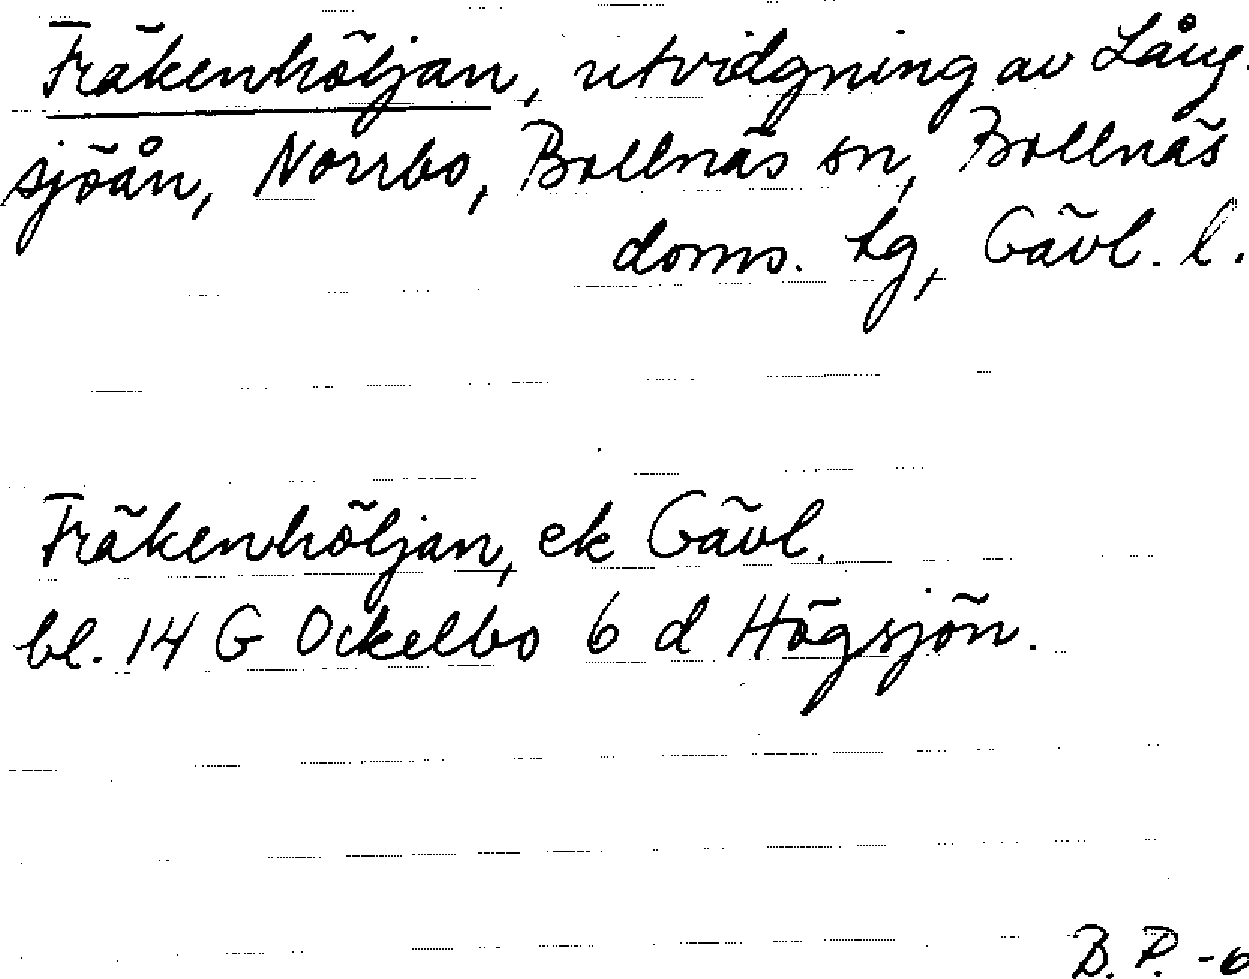 Fräkenhöljan, utvidgning av Lång-
sjöån, Norrbo, Bollnäs sn, Bollnäs
doms. tg, Gävl. l.
Fräkenhöljan, ek Gävl.
bl. 14 G Ockelbo 6 d Högsjön.
B. P. -6